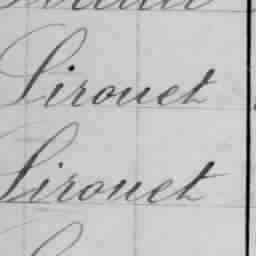 Sirouet
Sirouet